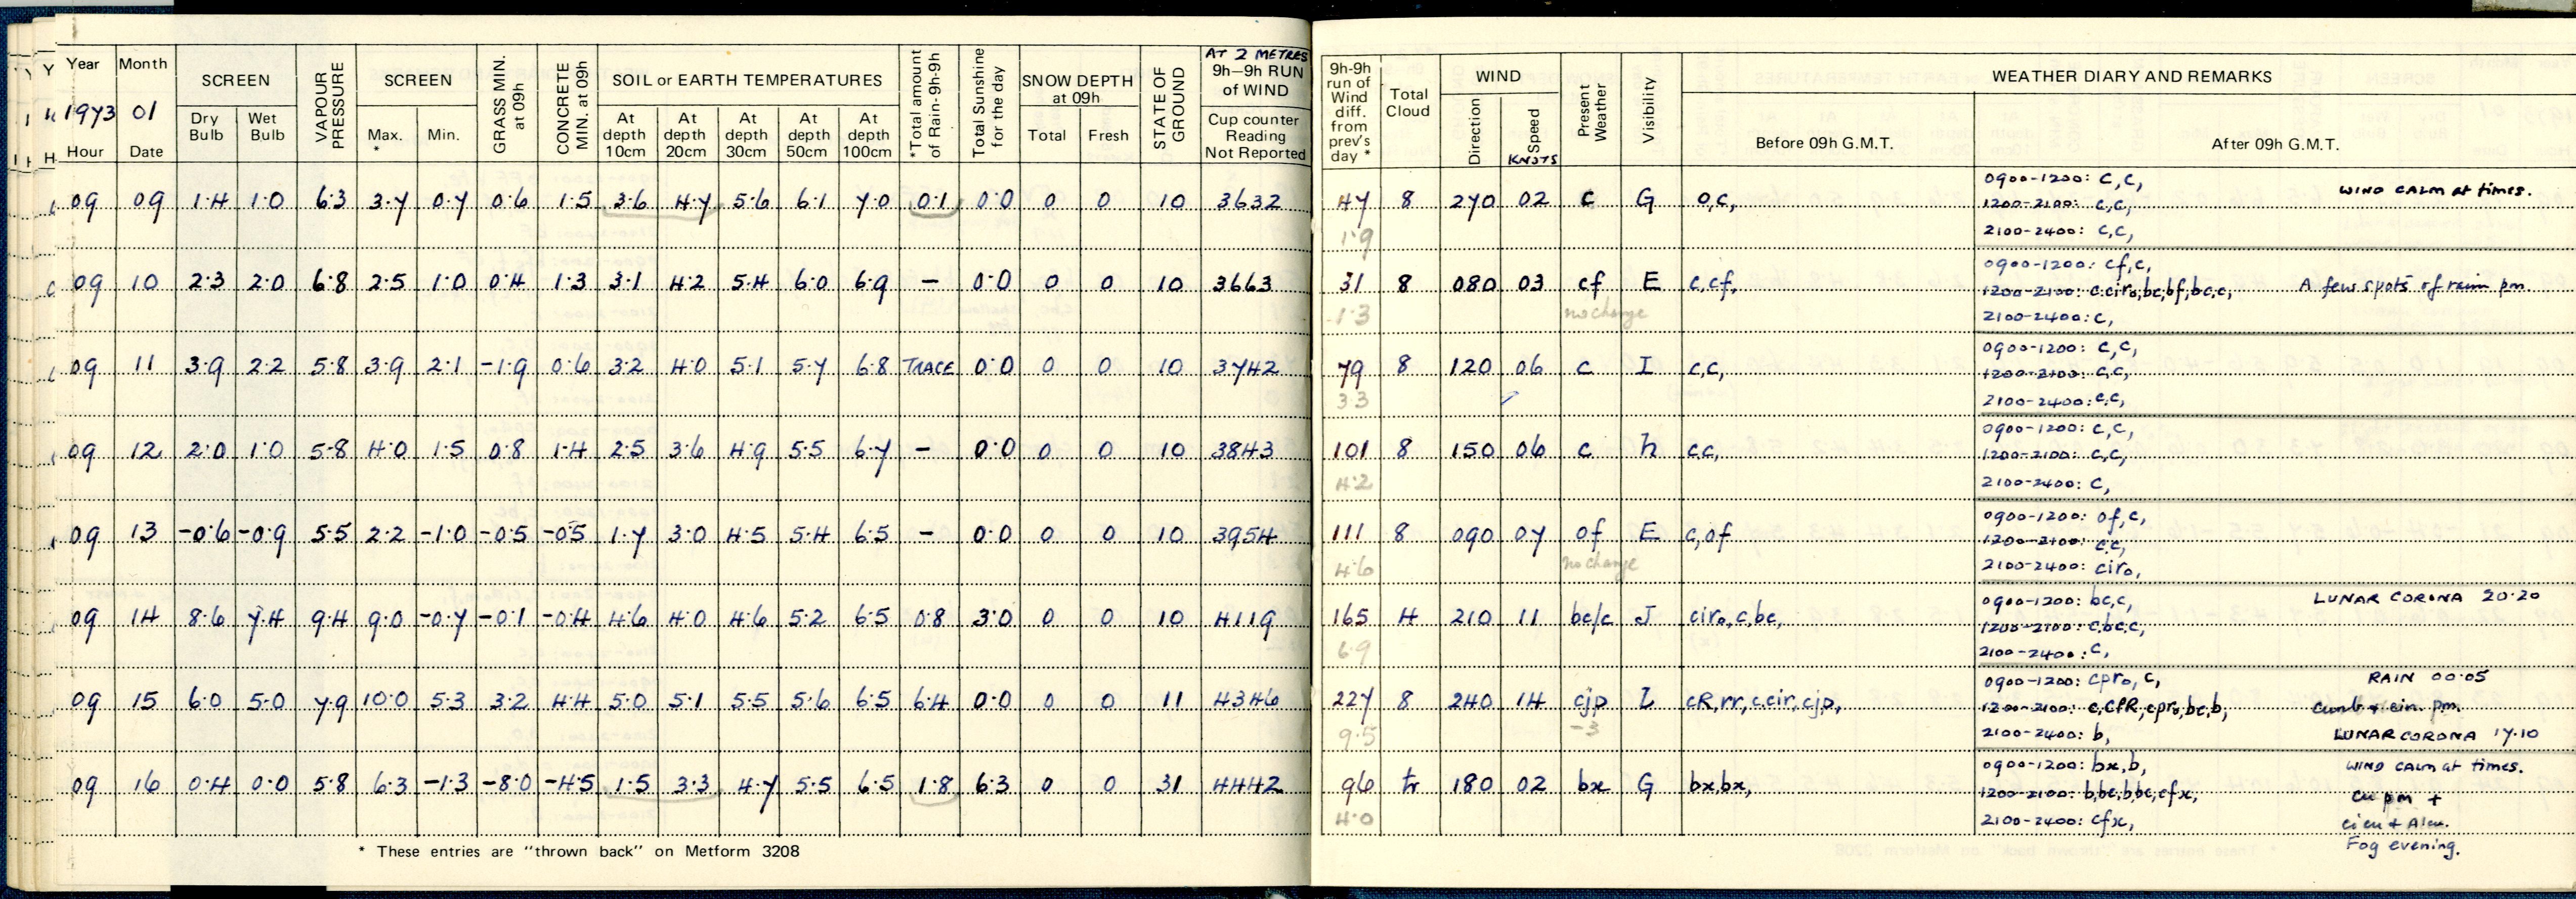 Year Month SCREEN VAPOUR PRESSURE SCREEN GRASS MIN. at 09h CONCRETE MIN. at 09h SOIL or EARTH TEMPERATURES *Total amount of Rain-9h-9h Total Sunshine for the day SNOW DEPTH at 09h STATE OF GROUND AT 2 METRES 9h–9h RUN of WIND
1973 01 Dry Bulb Wet Bulb Max. * Min. At depth 10cm At depth 20cm At depth 30cm At depth 50cm At depth 100cm Total Fresh Cup counter Reading Not Reported
Hour Date
09 09 1.4 1.0 6.3 3.7 0.7 0.6 1.5 3.6 4.7 5.6 6.1 7.0 0.1 0.0 0 0 10 3632
09 10 2.3 2.0 6.8 2.5 1.0 0.4 1.3 3.1 4.2 5.4 6.0 6.9 – 0.0 0 0 10 3663
09 11 3.9 2.2 5.8 3.9 2.1 -1.9 0.6 3.2 4.0 5.1 5.7 6.8 TRACE 0.0 0 0 10 3742
09 12 2.0 1.0 5.8 4.0 1.5 0.8 1.4 2.5 3.6 4.9 5.5 6.7 – 0.0 0 0 10 3843
09 13 -0.6 -0.9 5.5 2.2 -1.0 -0.5 -0.5 1.7 3.0 4.5 5.4 6.5 – 0.0 0 0 10 3954
09 14 8.6 7.4 9.4 9.0 -0.7 -0.1 -0.4 4.6 4.0 4.6 5.2 6.5 0.8 3.0 0 0 10 4119
09 15 6.0 5.0 7.9 10.0 5.3 3.2 4.4 5.0 5.1 5.5 5.6 6.5 6.4 0.0 0 0 11 4346
09 16 0.4 0.0 5.8 6.3 -1.3 -8.0 -4.5 1.5 3.3 4.7 5.5 6.5 1.8 6.3 0 0 31 4442
* These entries are "thrown back" on Metform 3208
9h-9h run of Wind diff. from prev's day * Total Cloud WIND Present Weather Visibility WEATHER DIARY AND REMARKS
Direction Speed KNOTS Before 09h G.M.T. After 09h G.M.T.
0900-1200: c,c,
47 8 270 02 c G o,c, WIND CALM at times.
1200-2100: c,c,
1.9 2100-2400: c,c,
0900-1200: cf,c,
31 8 080 03 cf E c,cf,
1200-2100: c,ciro,bc,bf,bc,c, A few spots of rain pm.
1.3 no change 2100-2400: c,
0900-1200: c,c,
79 8 120 06 c I c,c,
1200-2100: c,c,
3.3 2100-2400: c,c,
0900-1200: c,c,
101 8 150 06 c h c,c,
1200-2100: c,c,
4.2 2100-2400: c,
0900-1200: of,c,
111 8 090 07 of E c,of
1200-2100: c,c,
4.6 no change 2100-2400: ciro,
0900-1200: bc,c, LUNAR CORONA 20.20
165 4 210 11 bc/c J ciro,c,bc,
1200-2100: c,bc,c,
6.9 2100-2400: c,
0900-1200: cpro, c, RAIN 00.05
227 8 240 14 cjp I cR,rr,c,cir,cjp,
1200-2100: c,cPR,cpro,bc,b, cumb + cin. pm.
9.5 -3 2100-2400: b, LUNAR CORONA 17.10
0900-1200: bx,b, WIND CALM at times.
96 tr 180 02 bx G bx,bx,
1200-2100: b,bc,b,bc,cfx, cu pm +
4.0 2100-2400: cfx, cicu + Alcu.
Fog evening.